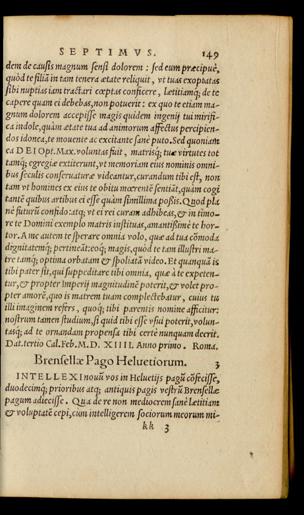 SEPTIMVS. 149
dem de causis magnum sensi dolorem : sed eum præcipuè,
quòd te filiā in tam tenera ætate reliquit, vt tuas exoptatas
sibi nuptias iam tractari cœptas conficere, lætitiamq́; de te
capere quam ei debebas, non potuerit : ex quo te etiam ma-
gnum dolorem accepisse magis quidem ingenij tui mirifi-
ca indole, quàm ætate tua ad animorum affectus percipien-
dos idonea, te mouente ac excitante sanè puto. Sed quoniam
ea DEI Opt. Max. voluntas fuit, matrisq́; tuæ virtutes tot
tamq́; egregiæ extiterunt, vt memoriam eius nominis omni-
bus seculis conseruaturæ videantur, curandum tibi est, non
tam vt homines ex eius te obitu mœrentē sentiāt, quàm cogi
tantē quibus artibus ei esse quàm simillima possis. Quod pla
nè futurū confido: atq; vt ei rei curam adhibeas, & in timo-
re te Domini exemplo matris instituas, amantißimè te hor-
tor. A me autem te sperare omnia volo, quæ ad tua cōmoda
dignitatemq́; pertineāt: eoq́; magis, quòd te tam illustri ma-
tre tamq́; optima orbatam & spoliatā video. Et quanquā is
tibi pater sit, qui suppeditare tibi omnia, quæ à te expeten-
tur, & propter imperij magnitudinē poterit, & volet pro-
pter amorē, quo is matrem tuam complectebatur, cuius tu
illi imaginem refers, quoq́; tibi parentis nomine afficitur:
nostrum tamen studium, si quid tibi esse vsui poterit, volun-
tasq́; ad te ornandam propensa tibi certè nunquam deerit.
Dat. tertio Cal. Feb. M. D. XIIII. Anno primo. Roma.
Brensellæ Pago Heluetiorum. 3
INTELLEXI nouū vos in Heluetijs pagū cōfecisse,
duodecimq́; prioribus atq; antiquis pagis vestrū Brensellæ
pagum adiecisse. Qua de re non mediocrem sanè lætitiam
& voluptatē cepi, cùm intelligerem sociorum meorum mi-
kk 3